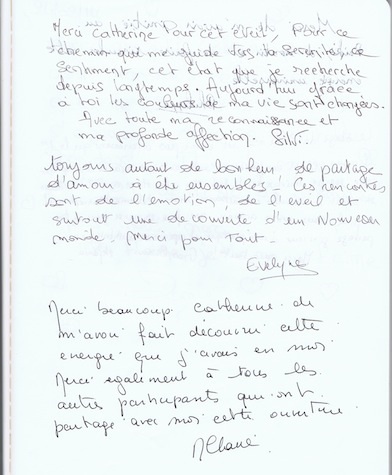 Merci Catherine Pour cet éveil, Pour ce
chemin qui me guide vers la Serenité, ce
Sentiment, cet état que je recherche
depuis longtemps. Aujourd'hui grâce
à toi les couleurs de ma vie sont changées.
Avec toute ma reconnaissance et
ma profonde affection.
toujours autant de bonheur, de partage
d'amour à être ensembles! Ces rencontres
sont de l'émotion, de l'eveil et
surtout une decouverte d'un Nouveau
monde. Merci pour Tout -
Evelyne
Merci beaucoup Catherine de
m'avoir fait découvrir cette
energie que j'avais en moi
Merci egalement à tous les
autres participants qui ont
partagé avec moi cette ouverture.